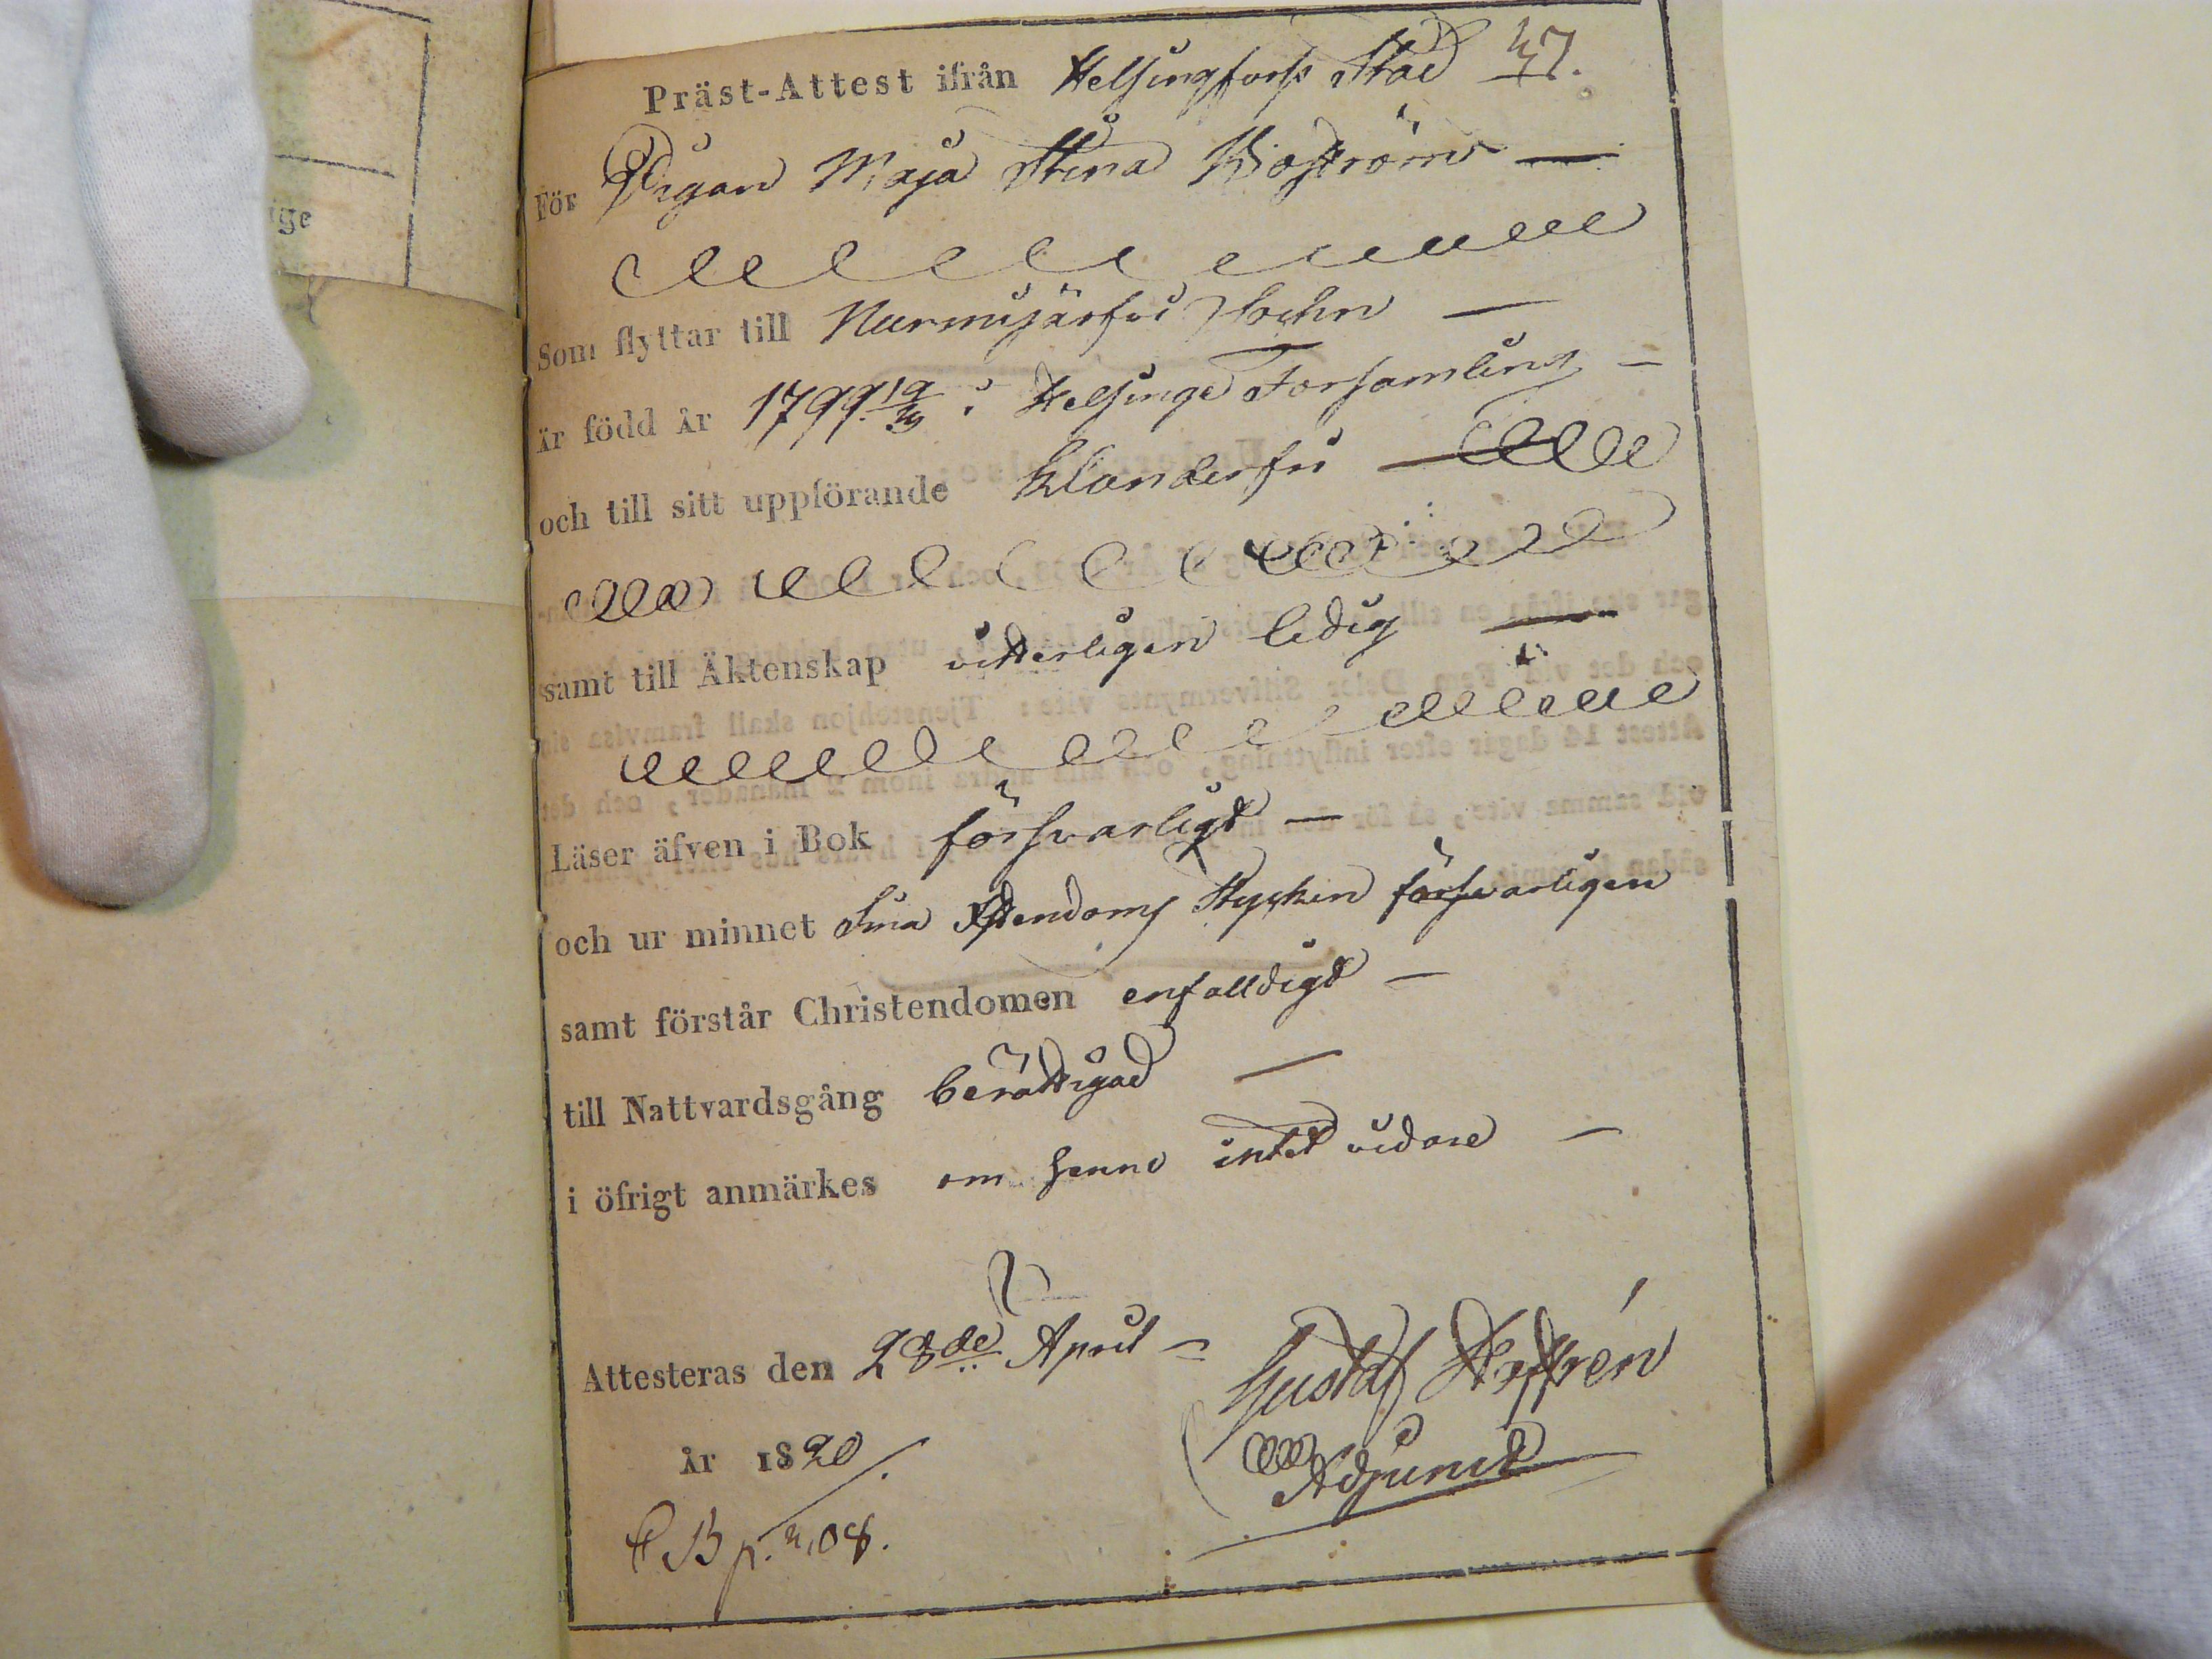 Präst-Attest ifrån Helsingfors Stad 47.
För Pigan Maja Stina Boström —
Som flyttar till Nurmijärfvi Sockn —
är född år 1799 19/3 i Helsinge Församling —
och till sitt uppförande klanderfri —
samt till Äktenskap vitterligen ledig —
Läser äfven i Bok försvarligt —
och ur minnet sina Xstendoms Stycken försvarligen
samt förstår Christendomen enfalldigt —
till Nattvardsgång berättigad —
i öfrigt anmärkes om henne intet vidare —
Attesteras den 28de April
år 1820.
Gustaf
Adjunct
B p. 208.
ige